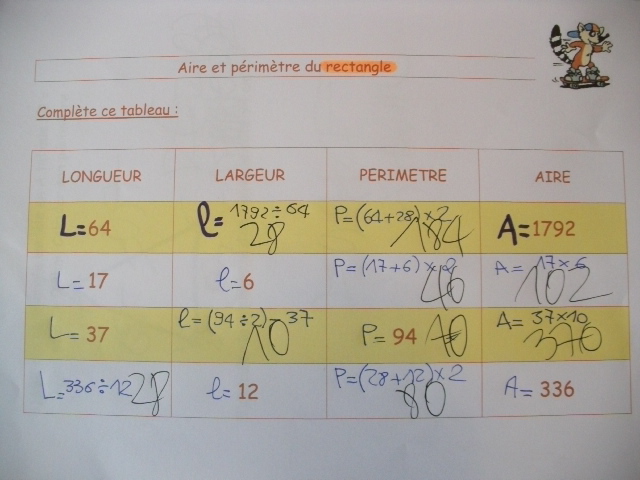 Aire et périmètre du rectangle
Complète ce tableau :
LONGUEUR LARGEUR PERIMETRE AIRE
L=64 l= 1792÷64 28 P=(64+28)×2 184 A=1792
L= 17 l=6 P=(17+6)×2 46 A= 17×6 102
L= 37 l=(94÷2)-37 10 P= 94 A= 37×10 370
L=336÷12 28 l= 12 P=(28+12)×2 80 A= 336